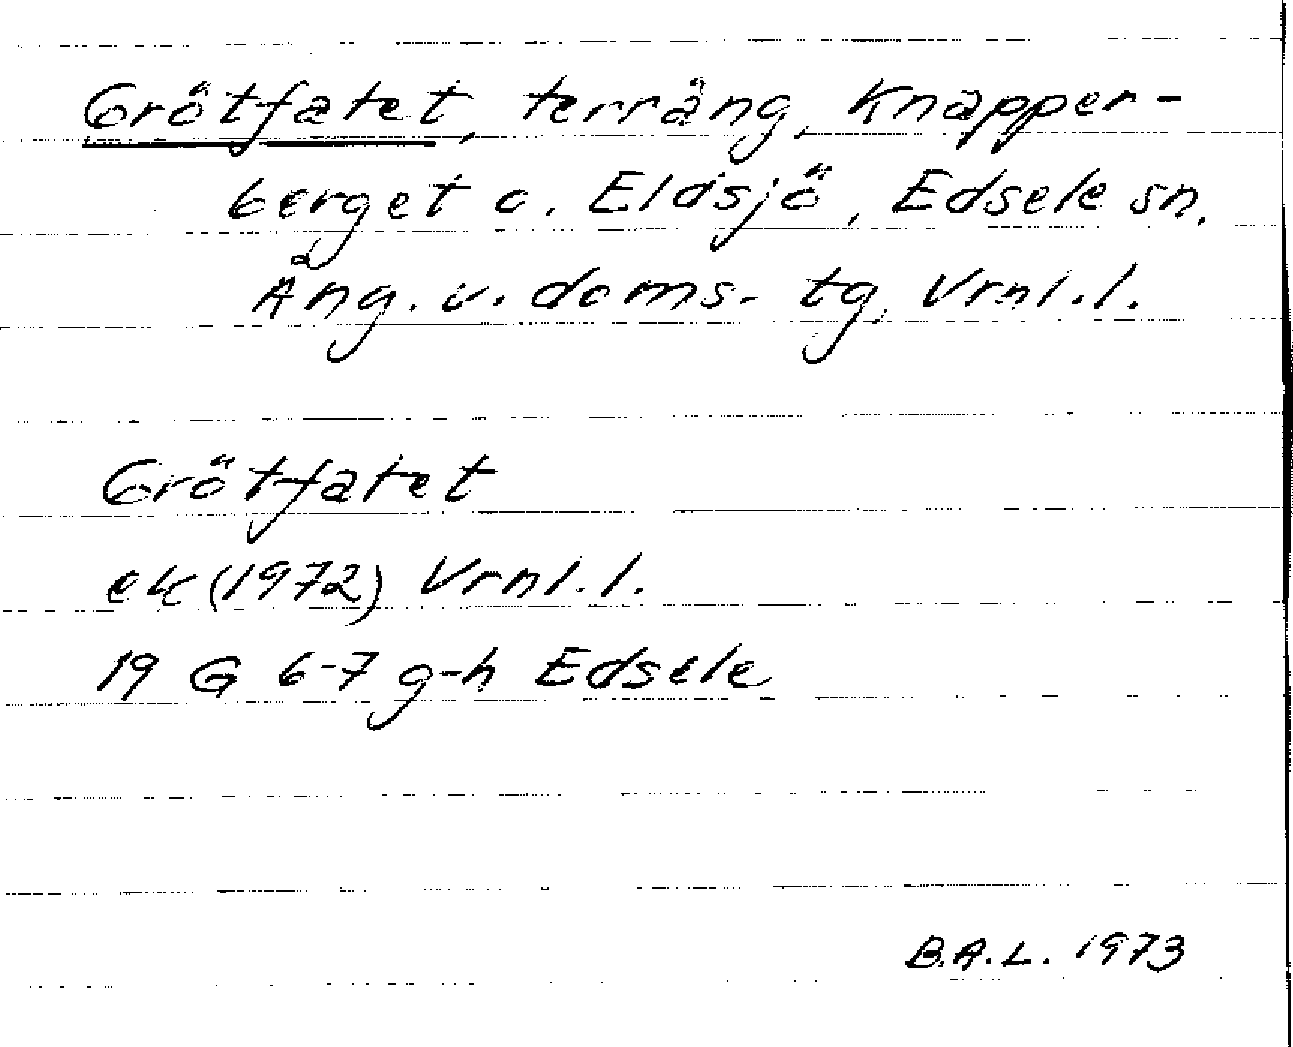 Grötfatet, terräng, Knapper-
berget o. Eldsjö, Edsele sn.
Ång. v. doms- tg, Vrnl.l.
Grötfatet
ek (1972) Vrnl.l.
19 G 6-7 g-h Edsele
B.A.L. 1973